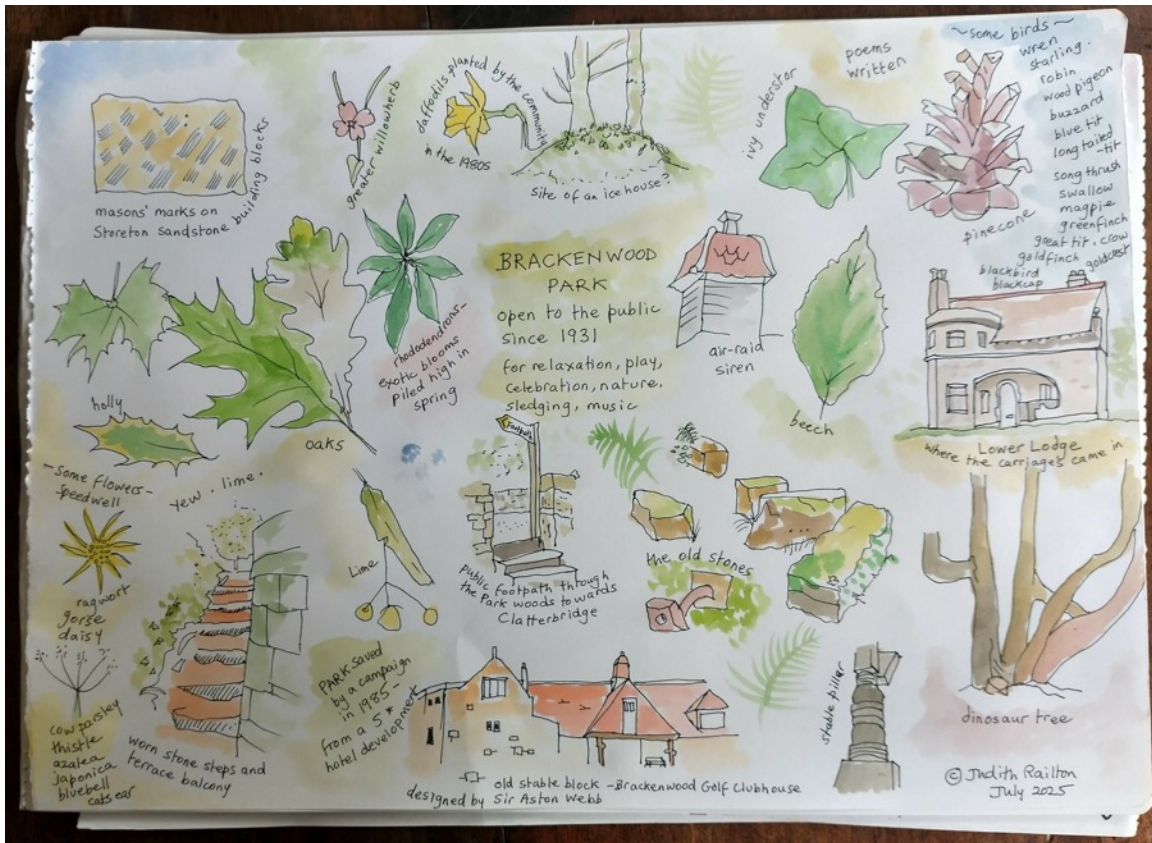 masons' marks on
Storeton Sandstone
building blocks
greater willowherb
daffodils planted by the community
in the 1980s
site of an icehouse?
ivy understor
poems
written
pinecone
~some birds~
wren
starling.
robin
wood pigeon
buzzard
blue tit
long tailed
-tit
song thrush
swallow
magpie
greenfinch
great tit. crow
goldfinch
goldcrest
blackbird
blackcap
holly
oaks
rhododendrons-
exotic blooms
piled high in
spring
BRACKENWOOD
PARK
open to the public
since 1931
for relaxation, play,
celebration, nature,
sledging, music
air-raid
siren
beech
Lower Lodge
where the carriages came in
-some flowers-
speedwell
yew. lime.
ragwort
gorse
daisy
cow parsley
thistle
azalea
japonica
bluebell
cats ear
worn stone steps and
terrace balcony
Lime
Footpath
public footpath through
the park woods towards
Clatterbridge
the old stones
dinosaur tree
PARK saved
by a campaign
in 1985-
from a 5*
hotel development
old stable block -Brackenwood Golf Clubhouse
designed by Sir Aston Webb
stable pillar
© Judith Railton
July 2025